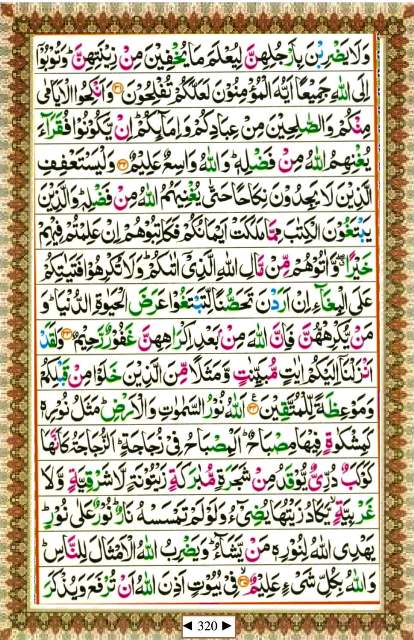 وَلَا يَضْرِبْنَ بِأَرْجُلِهِنَّ لِيُعْلَمَ مَا يُخْفِيْنَ مِنْ زِيْنَتِهِنَّ ؕ وَتُوْبُوْۤا
اِلَى اللّٰهِ جَمِيْعًا اَيُّهَ الْمُؤْمِنُوْنَ لَعَلَّكُمْ تُفْلِحُوْنَ ﴿۳۱﴾ وَاَنْكِحُوا الْاَيَامٰى
مِنْكُمْ وَالصّٰلِحِيْنَ مِنْ عِبَادِكُمْ وَاِمَآئِكُمْ ؕ اِنْ يَّكُوْنُوْا فُقَرَآءَ
يُغْنِهِمُ اللّٰهُ مِنْ فَضْلِهٖ ؕ وَاللّٰهُ وَاسِعٌ عَلِيْمٌ ﴿۳۲﴾ وَلْيَسْتَعْفِفِ
الَّذِيْنَ لَا يَجِدُوْنَ نِكَاحًا حَتّٰى يُغْنِيَهُمُ اللّٰهُ مِنْ فَضْلِهٖ ؕ وَالَّذِيْنَ
يَبْتَغُوْنَ الْكِتٰبَ مِمَّا مَلَكَتْ اَيْمَانُكُمْ فَكَاتِبُوْهُمْ اِنْ عَلِمْتُمْ فِيْهِمْ
خَيْرًا ۖ وَّاٰتُوْهُمْ مِّنْ مَّالِ اللّٰهِ الَّذِيْۤ اٰتٰىكُمْ ؕ وَلَا تُكْرِهُوْا فَتَيٰتِكُمْ
عَلَى الْبِغَآءِ اِنْ اَرَدْنَ تَحَصُّنًا لِّتَبْتَغُوْا عَرَضَ الْحَيٰوةِ الدُّنْيَا ؕ وَ
مَنْ يُّكْرِهْهُّنَّ فَاِنَّ اللّٰهَ مِنْۢ بَعْدِ اِكْرَاهِهِنَّ غَفُوْرٌ رَّحِيْمٌ ﴿۳۳﴾ وَلَقَدْ
اَنْزَلْنَاۤ اِلَيْكُمْ اٰيٰتٍ مُّبَيِّنٰتٍ وَّمَثَلًا مِّنَ الَّذِيْنَ خَلَوْا مِنْ قَبْلِكُمْ
وَمَوْعِظَةً لِّلْمُتَّقِيْنَ ﴿۳۴﴾ اَللّٰهُ نُوْرُ السَّمٰوٰتِ وَالْاَرْضِ ؕ مَثَلُ نُوْرِهٖ
كَمِشْكٰوةٍ فِيْهَا مِصْبَاحٌ ؕ اَلْمِصْبَاحُ فِيْ زُجَاجَةٍ ؕ اَلزُّجَاجَةُ كَاَنَّهَا
كَوْكَبٌ دُرِّيٌّ يُّوْقَدُ مِنْ شَجَرَةٍ مُّبٰرَكَةٍ زَيْتُوْنَةٍ لَّا شَرْقِيَّةٍ وَّلَا
غَرْبِيَّةٍ ۙ يَّكَادُ زَيْتُهَا يُضِيْٓءُ وَلَوْ لَمْ تَمْسَسْهُ نَارٌ ؕ نُوْرٌ عَلٰى نُوْرٍ ؕ
يَهْدِى اللّٰهُ لِنُوْرِهٖ مَنْ يَّشَآءُ ؕ وَيَضْرِبُ اللّٰهُ الْاَمْثَالَ لِلنَّاسِ ؕ
وَاللّٰهُ بِكُلِّ شَيْءٍ عَلِيْمٌ ﴿۳۵﴾ فِيْ بُيُوْتٍ اَذِنَ اللّٰهُ اَنْ تُرْفَعَ وَيُذْكَرَ
◄ 320 ►